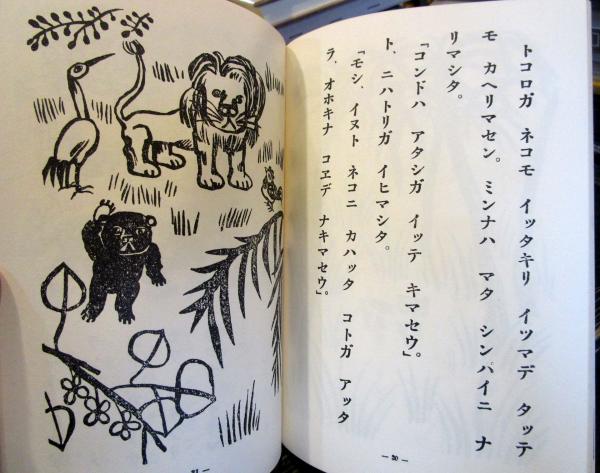 トコロガ ネコモ イッタキリ イツマデ タッテ
モ カヘリマセン。 ミンナハ マタ シンパイニ ナ
リマシタ。
「コンドハ アタシガ イッテ キマセウ」。
ト、ニハトリガ イヒマシタ。
「モシ、イヌト ネコニ カハッタ コトガ アッタ
ラ、オホキナ コヱデ ナキマセウ」。
— 30 —